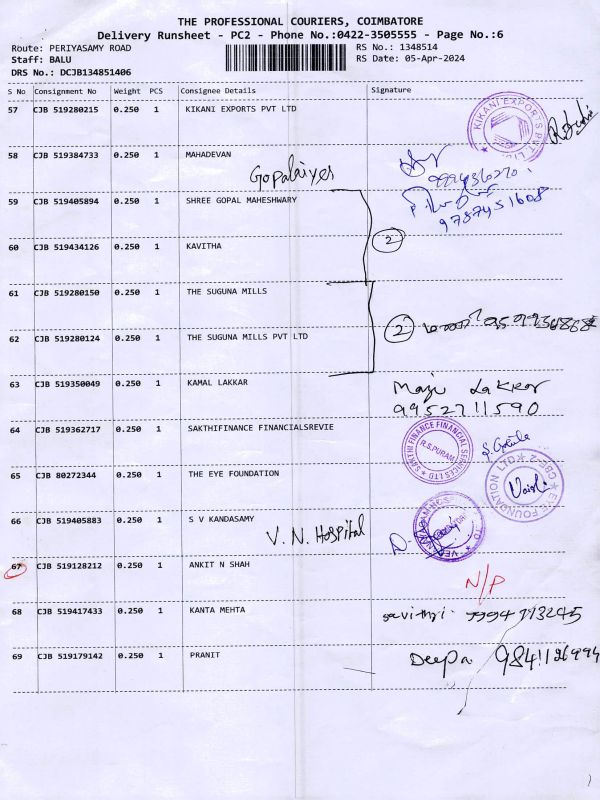 THE PROFESSIONAL COURIERS, COIMBATORE
Delivery Runsheet - PC2 - Phone No.:0422-3505555 - Page No.:6
Route: PERIYASAMY ROAD RS No.: 1348514
Staff: BALU RS Date: 05-Apr-2024
DRS No.: DCJB134851406
S No Consignment No Weight PCS Consignee Details Signature
57 CJB 519280215 0.250 1 KIKANI EXPORTS PVT LTD
KIKANI EXPORTS PVT. LTD.
58 CJB 519384733 0.250 1 MAHADEVAN
Gopalaiyer
59 CJB 519405894 0.250 1 SHREE GOPAL MAHESHWARY
9787451608
60 CJB 519434126 0.250 1 KAVITHA
2
61 CJB 519280150 0.250 1 THE SUGUNA MILLS
62 CJB 519280124 0.250 1 THE SUGUNA MILLS PVT LTD
2
63 CJB 519350049 0.250 1 KAMAL LAKKAR
Lakkar
9952711590
64 CJB 519362717 0.250 1 SAKTHIFINANCE FINANCIALSREVIE
SAKTHI FINANCE FINANCIAL SERVICES LTD
R.S.PURAM
65 CJB 80272344 0.250 1 THE EYE FOUNDATION
EYE FOUNDATION LTD CBE-2
66 CJB 519405883 0.250 1 S V KANDASAMY
V. N. Hospital
67 CJB 519128212 0.250 1 ANKIT N SHAH
N/P
68 CJB 519417433 0.250 1 KANTA MEHTA
savithri. 9994713245
69 CJB 519179142 0.250 1 PRANIT
Deepa 9841126994